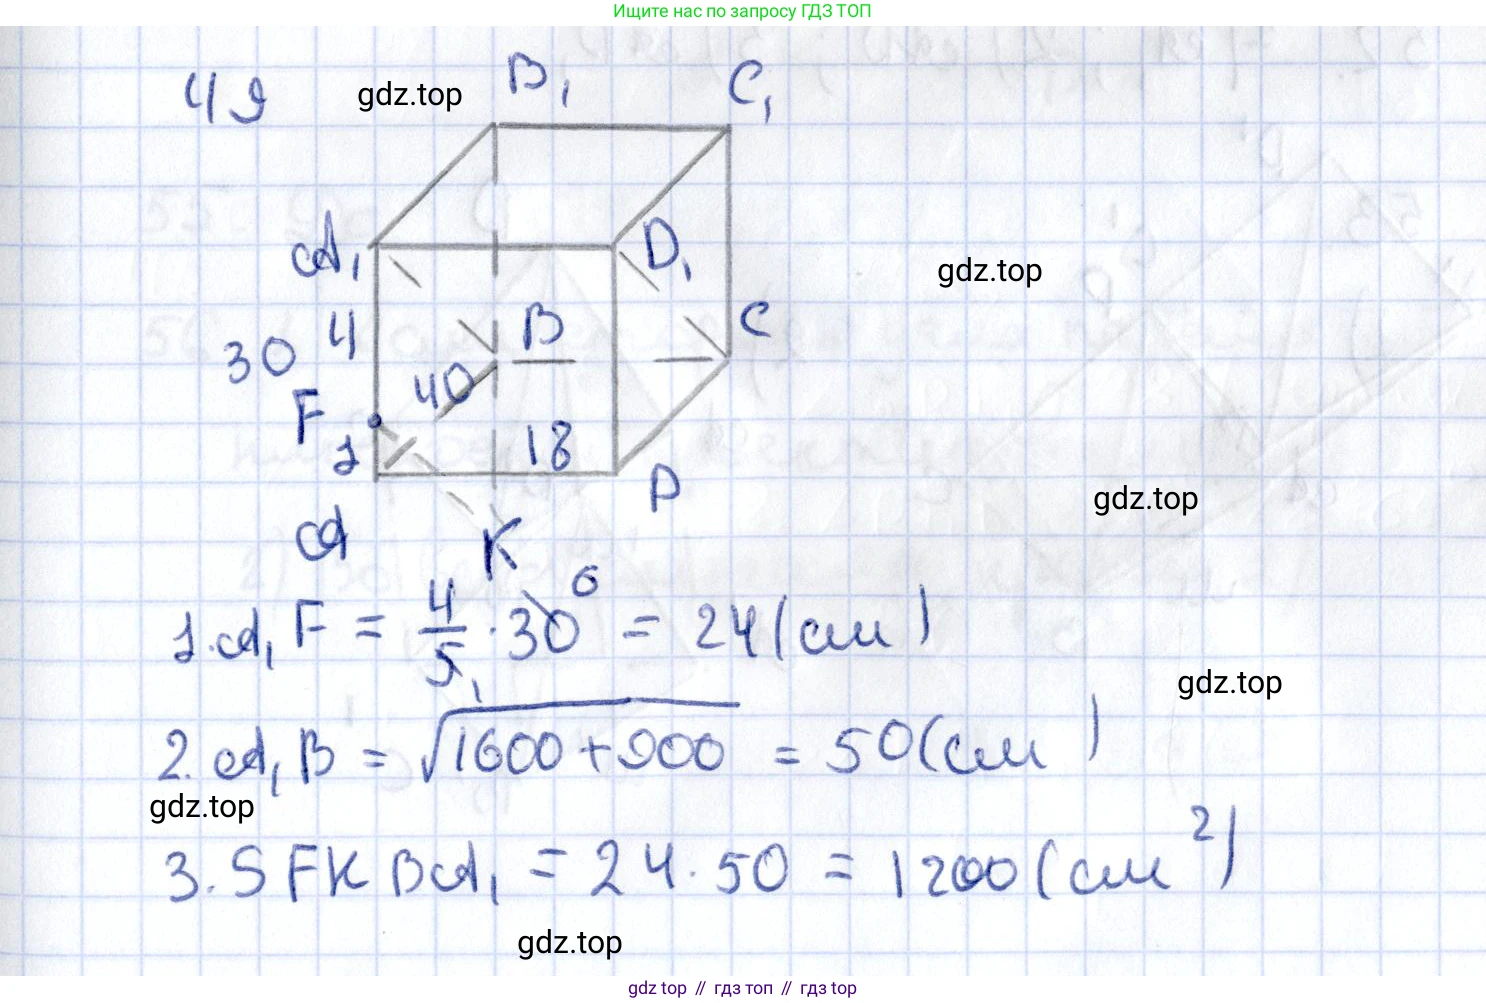 Ищите нас по запросу ГДЗ ТОП
49
gdz.top
B₁
C₁
A₁
D₁
gdz.top
30
4
B
C
F
40
1
18
D
gdz.top
A
K
1. A₁F = 4/5 · 30 = 24 (см)
6
1
gdz.top
2. A₁B = √1600+900 = 50 (см)
gdz.top
3. S FKBA₁ = 24 · 50 = 1200 (см²)
gdz.top
gdz top // гдз топ // гдз top